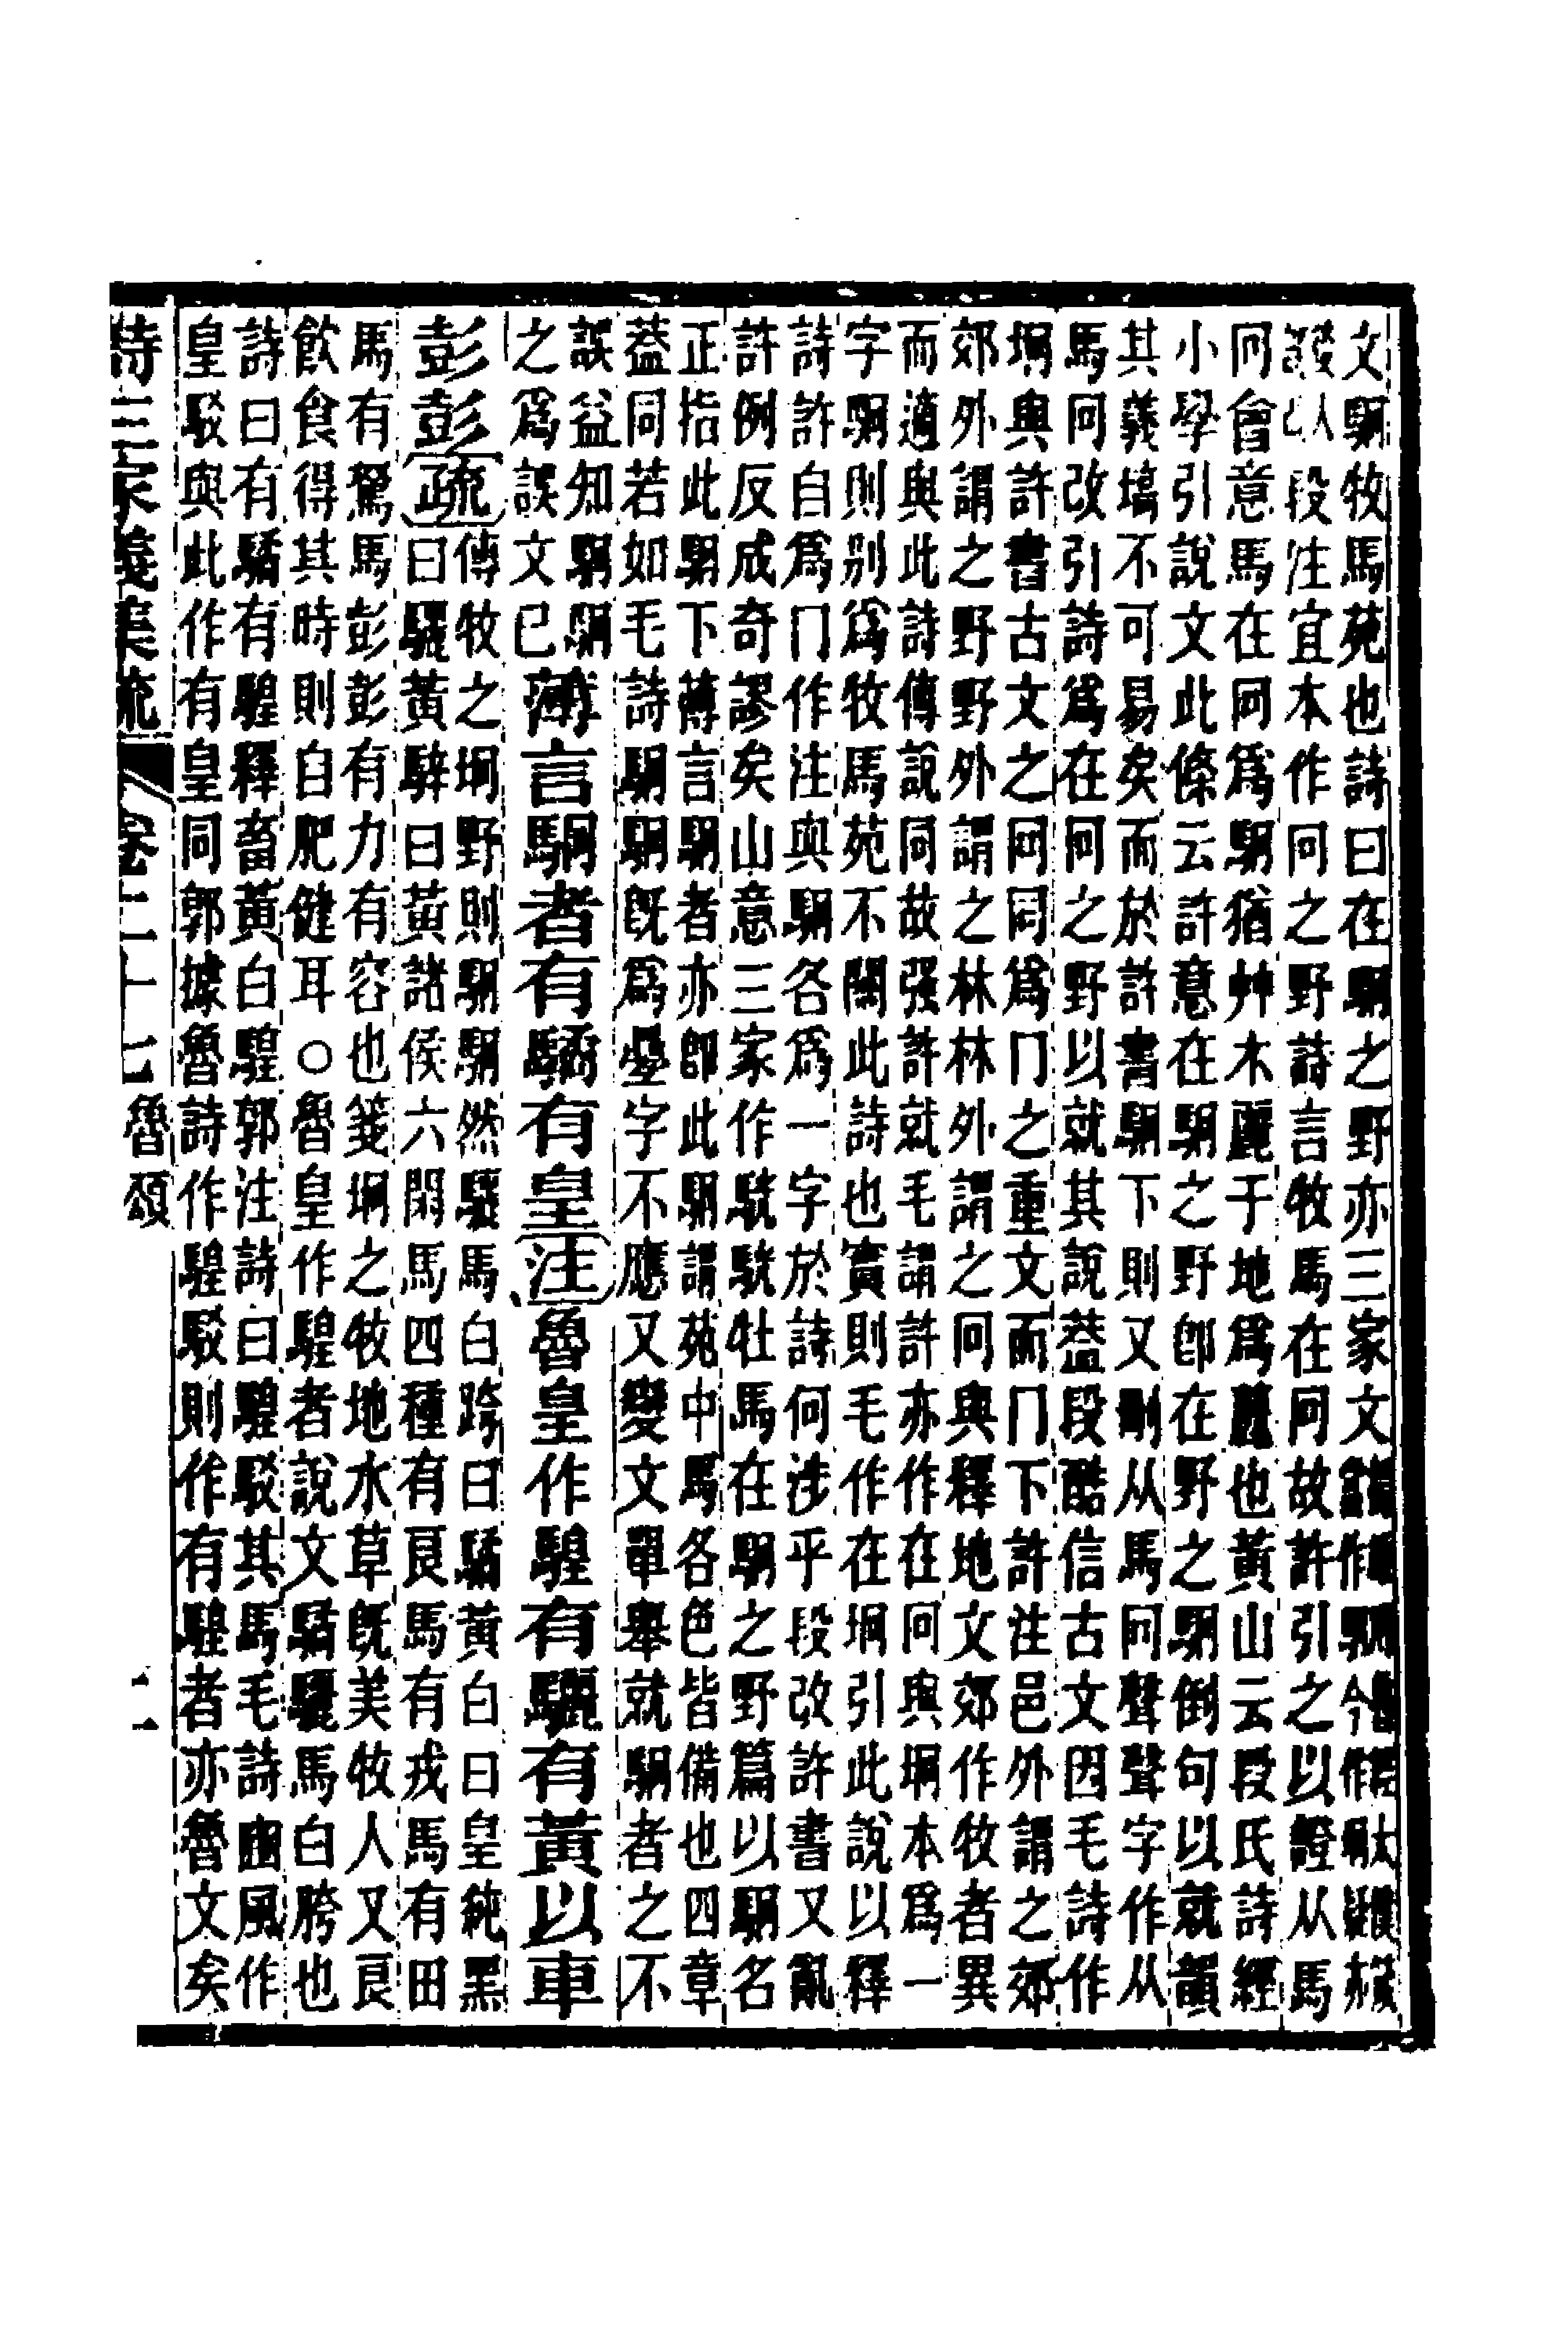 文駉牧馬苑也詩曰在駉之野亦三家文
段注宜本作冋之野詩言牧馬在冋故許引之以證从馬
冋會意馬在冋爲駉猶艸木麗于地爲䕻也黃山云段氏詩經
小學引說文此條云許意在駉之野卽在野之駉倒句以就韻
其義塙不可易矣而於許書駉下則又刪从馬冋聲聲字作从
馬冋改引詩爲在冋之野以就其說葢段酷信古文因毛詩作
坰與許書古文之冋同爲冂之重文而冂下許注邑外謂之郊
郊外謂之野野外謂之林林外謂之冋與釋地文郊作牧者異
而適與此詩傳說同故强許就毛謂許亦作在冋與坰本爲一
字駉則别爲牧馬苑不關此詩也實則毛作在坰引此說以釋
詩許自爲冂作注與駉各爲一字於詩何涉乎段改許書又亂
許例反成奇謬矣山意三家作駫駫牡馬在駉之野篇以駉名
正指此駉下薄言駉者亦卽此駉謂苑中馬各色皆備也四章
葢同若如毛詩駉駉旣爲疊字不應又變文單舉就駉者之不
誤益知駉駉
之爲誤文已薄言駉者有驈有皇注魯皇作騜有驪有黃以車
彭彭疏傳牧之坰野則駉駉然驪馬白跨曰驈黃白曰皇純黑
曰驪黃騂曰黃諸侯六閑馬四種有良馬有戎馬有田
馬有駑馬彭彭有力有容也箋坰之牧地水草旣美牧人又良
飮食得其時則自肥健耳○魯皇作騜者說文驈驪馬白胯也
詩曰有驈有騜釋畜黃白騜郭注詩曰騜駁其馬毛詩豳風作
皇駁與此作有皇同郭據魯詩作騜駁則作有騜者亦魯文矣
詩三家義集疏 卷二十七 魯頌